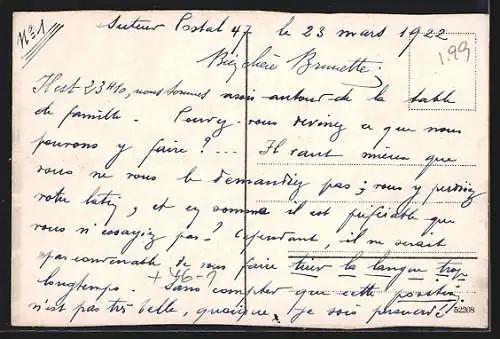 N°1
Secteur Postal 47 le 23 mars 1922
1.99
Bien chère Brunette,
Il est 23H10, nous sommes assis autour de la table
de famille. Pouvez-vous deviner ce que nous
pouvons y faire ?.... Il vaut mieux que
vous ne vous le demandiez pas ; vous y perdriez
votre latin, et en somme il est préférable que
vous n'essayiez pas ? Cependant, il ne serait
pas convenable de vous faire tirer la langue trop
longtemps. Sans compter que cette position
n'est pas très belle, quoique je sois persuadé
52208